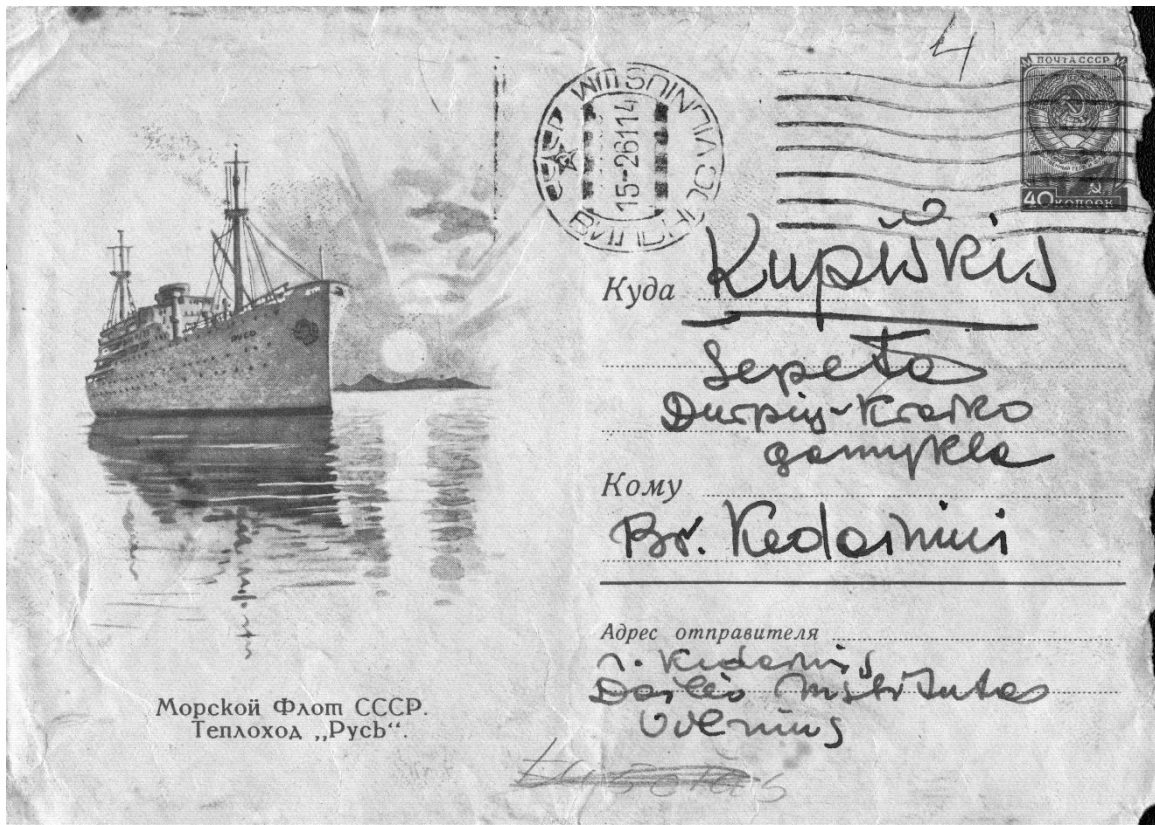 4
ПОЧТА СССР
40 КОПЕЕК
СССР VILNIUS ВИЛЬНЮС
15-261114
Куда Kupiškis
Šepeta
Durpių-Kraiko
gamykla
Кому
Br. Kedainiui
РУСЬ
Адрес отправителя
Dailės Institutas
Vilnius
Морской Флот СССР.
Теплоход „Русь“.